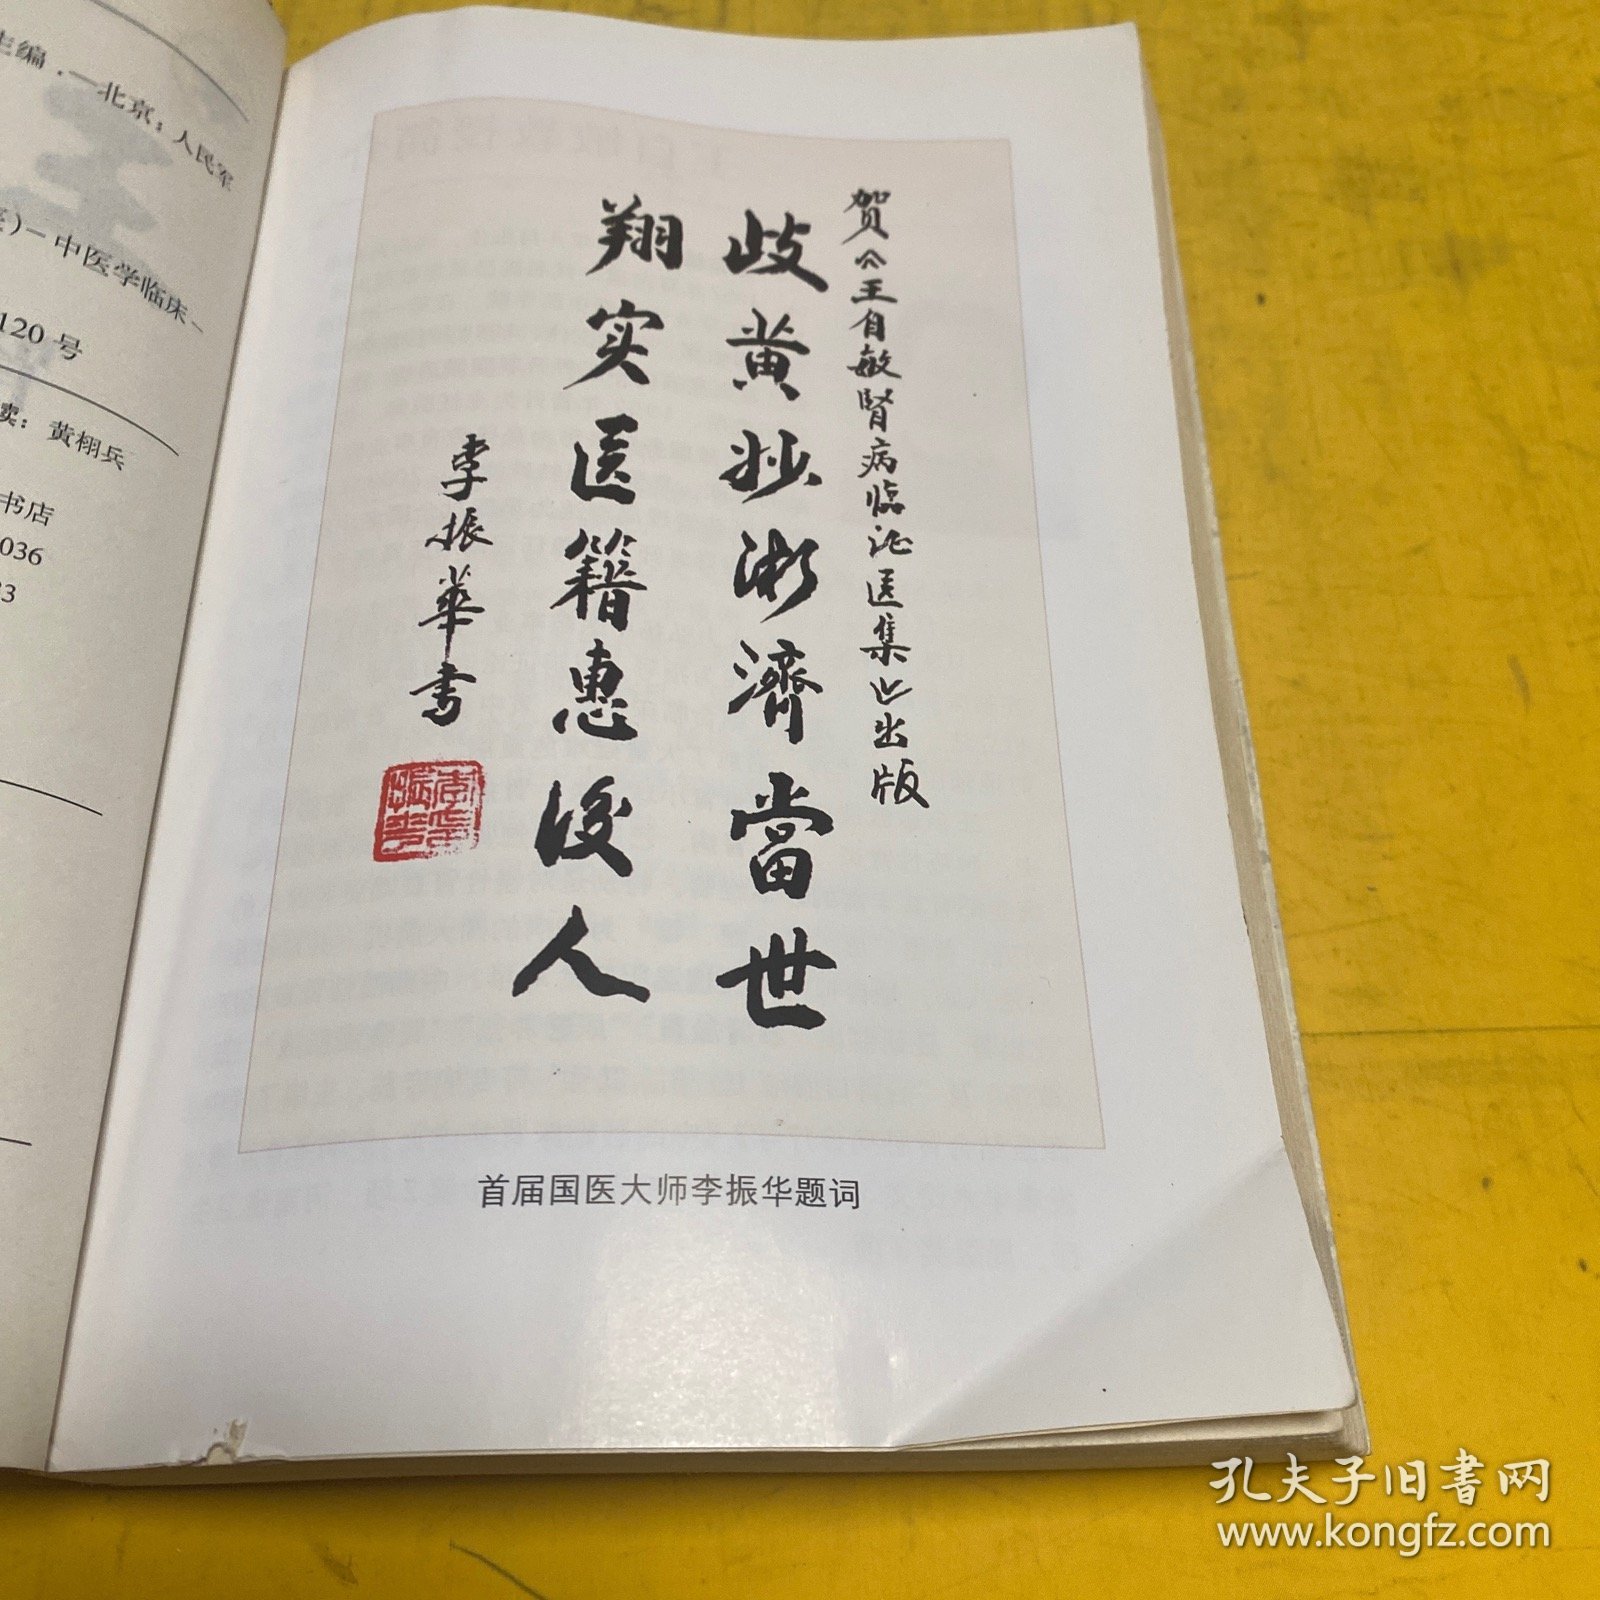 主编.—北京：人民军
)-中医学临床-
120 号
读：黄栩兵
书店
036
3
贺《王自敏腎病临证医集》出版
歧黄妙術濟當世
翔实医籍惠後人
李振華书
首届国医大师李振华题词
孔夫子旧书网
www.kongfz.com